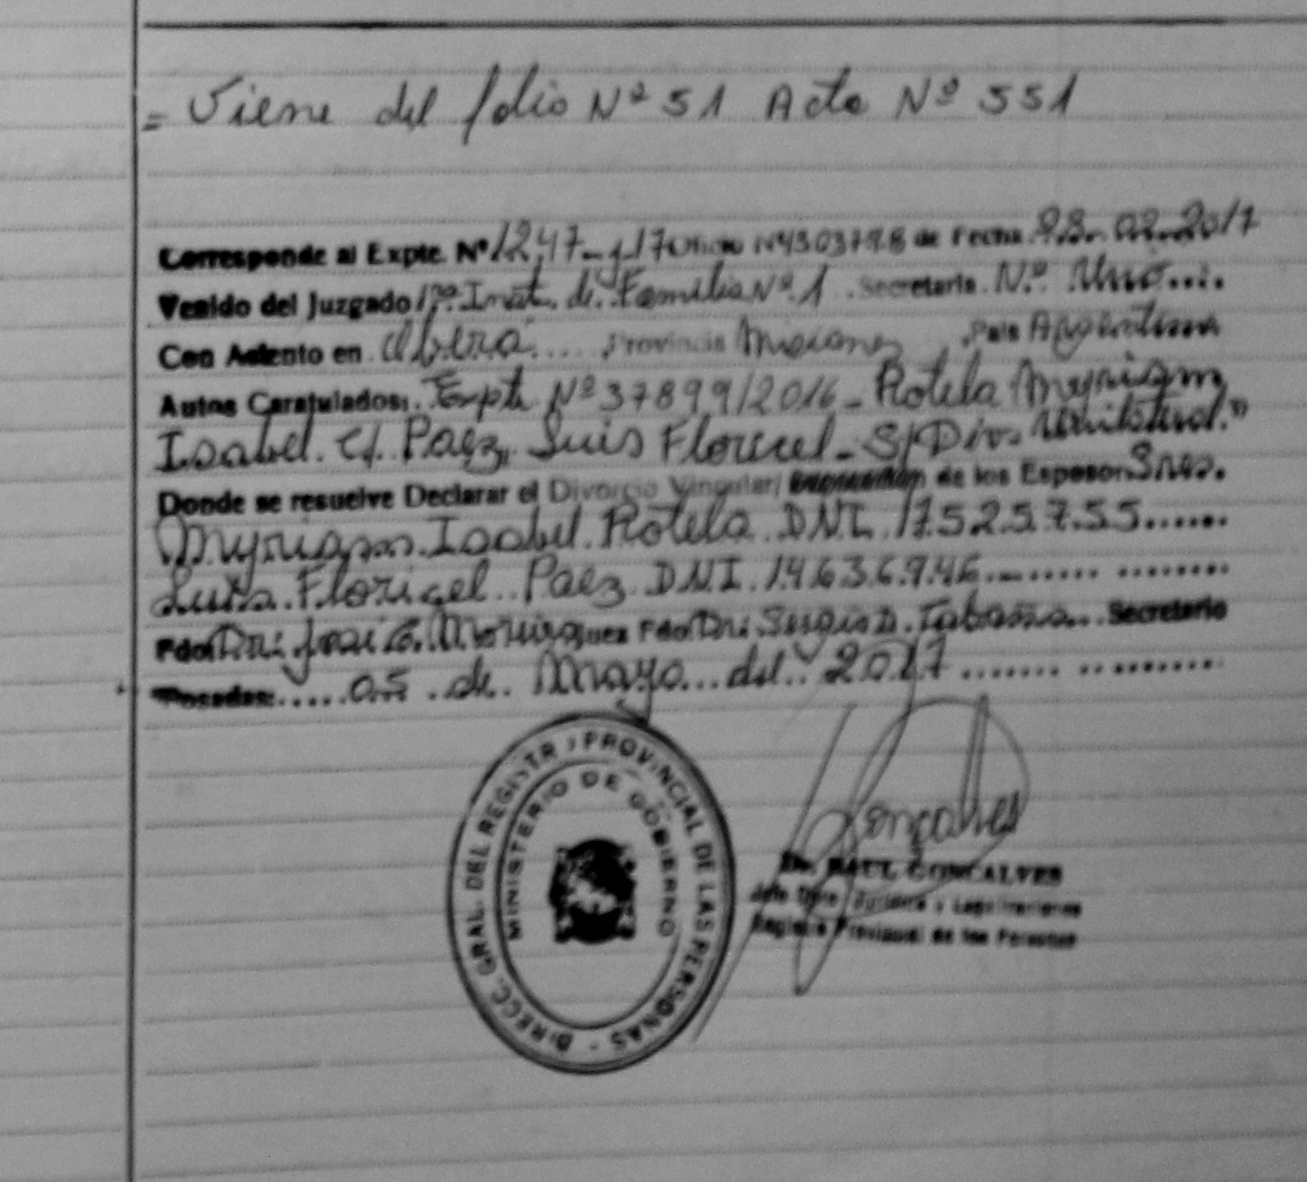 = Viene del folio Nº 51 Acta Nº 551
Corresponde al Expte. Nº 1247-J-17 Oficio Nº 4303798 de Fecha 23-02-2017
Venido del Juzgado 1ra. Inst. de Familia Nº 1 Secretaria Nº Uno....
Con Asiento en Oberá.... Provincia Misiones, Pais Argentina
Autos Caratulados: Expte Nº 37899/2016 - Rotela Myriam
Isabel C/ Paez, Luis Floricel - S/ Div. Unilateral"
Donde se resuelve Declarar el Divorcio Vincular/ Separación de los Esposos Sres.
Myriam Isabel Rotela DNI. 17525755......
Luis Floricel Paez DNI. 14636946............
Fdo: Dr. José G. Fdo: Dr. Sergio D. Secretario
Posadas: ..... 05 de Mayo del 2017 ................
DIRECC. GRAL. DEL REGISTRO PROVINCIAL DE LAS PERSONAS -
MINISTERIO DE GOBIERNO
Goncalves
Dr. RAUL GONCALVES
Jefe Dpto. Jurídico y Legalizaciones
Registro Provincial de las Personas